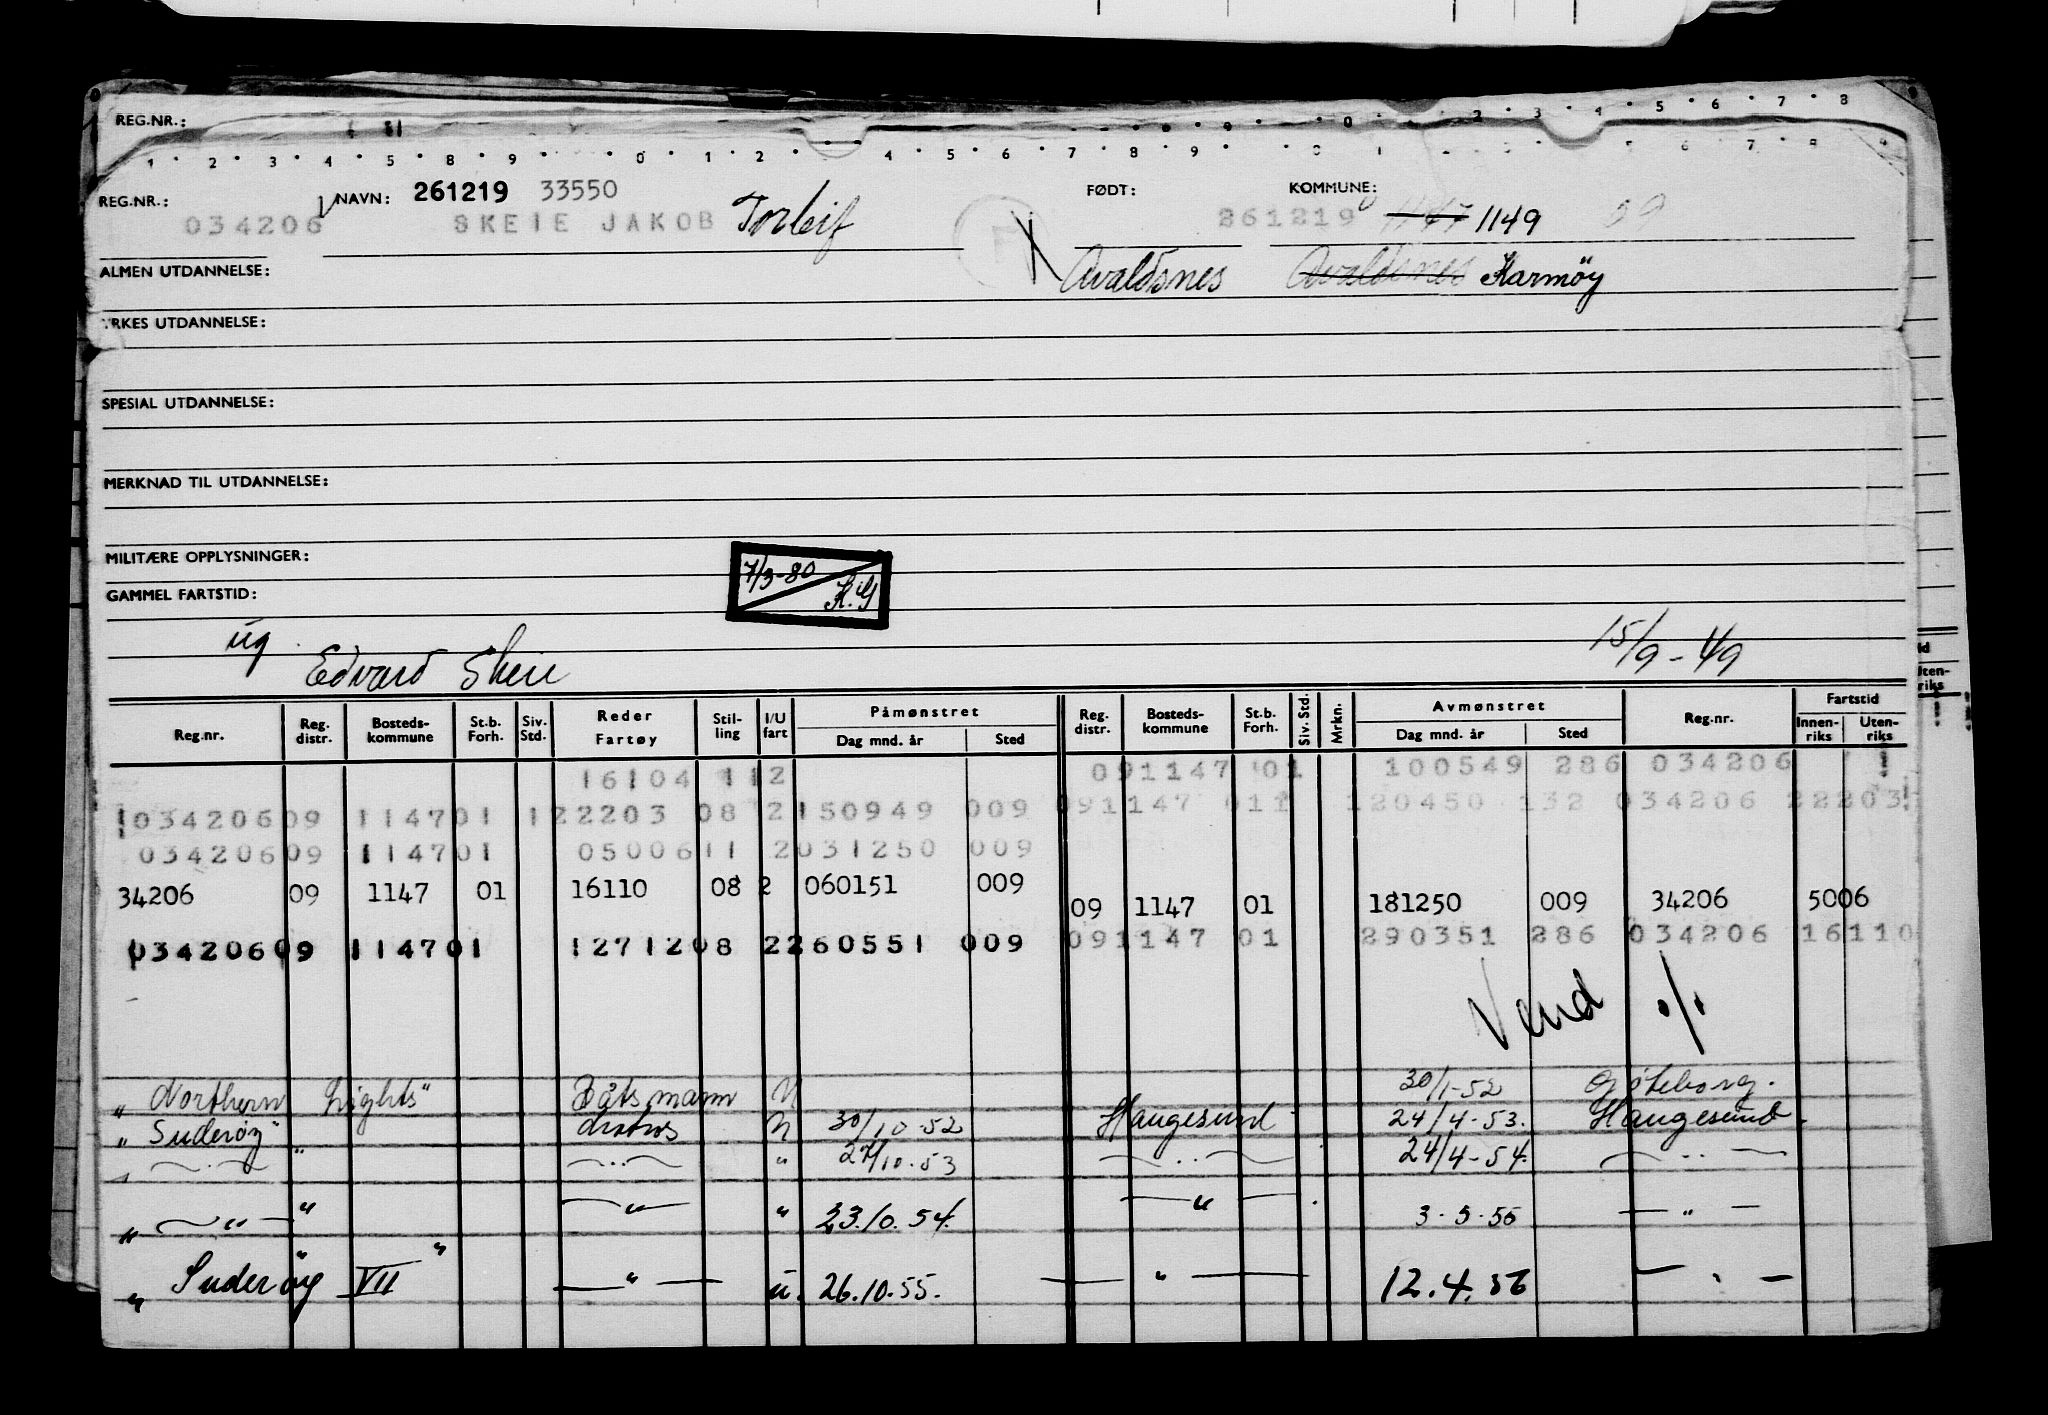 REG.NR.:
1 · 2 · 3 · 4 · 5 · 8 · 9 · 0 · 1 2 · 4 · 5 · 6 · 7 · 8 · 9
REG.NR.: NAVN: 261219 33550 FØDT: KOMMUNE:
034206 SKEIE JAKOB Torleif 261219 1147 1149 59
ALMEN UTDANNELSE: Avaldsnes Avaldsnes Karmøy
YRKES UTDANNELSE:
SPESIAL UTDANNELSE:
MERKNAD TIL UTDANNELSE:
MILITÆRE OPPLYSNINGER:
7/3-80 K.G
GAMMEL FARTSTID:
ug Edvard Skeie 15/9-49
Reg.nr. Reg. distr. Bosteds-kommune St.b. Forh. Siv. Std. Reder Fartøy Stil-ling I/U fart Påmønstret Dag mnd. år Sted Reg. distr. Bosteds-kommune St.b. Forh. Siv. Std. Mrkn. Avmønstret Dag mnd. år Sted Reg.nr. Fartstid Innen-riks Uten-riks
16104 112 091147 01 100549 286 034206
03420609 114701 122203 08 2150949 009 091147 011 120450 132 034206 22203
03420609 114701 0500611 2031250 009
34206 09 1147 01 16110 08 2 060151 009 09 1147 01 181250 009 34206 5006
03420609 114701 1271208 2260551 009 091147 01 290351 286 034206 16110
Vend ./.
"Northern Lights" Båtsmann U 30/1-52 Gøteborg.
"Suderøy" Matros U 30/10-52 Haugesund 24/4-53. Haugesund.
" — " — " — " — " 27/10-53 — " — 24/4-54. — " —
" — " — " — " — " 23.10.54. — " — 3.5.55 — " —
"Suderøy VII" — " — u. 26.10.55. — " — 12.4.56 — " —